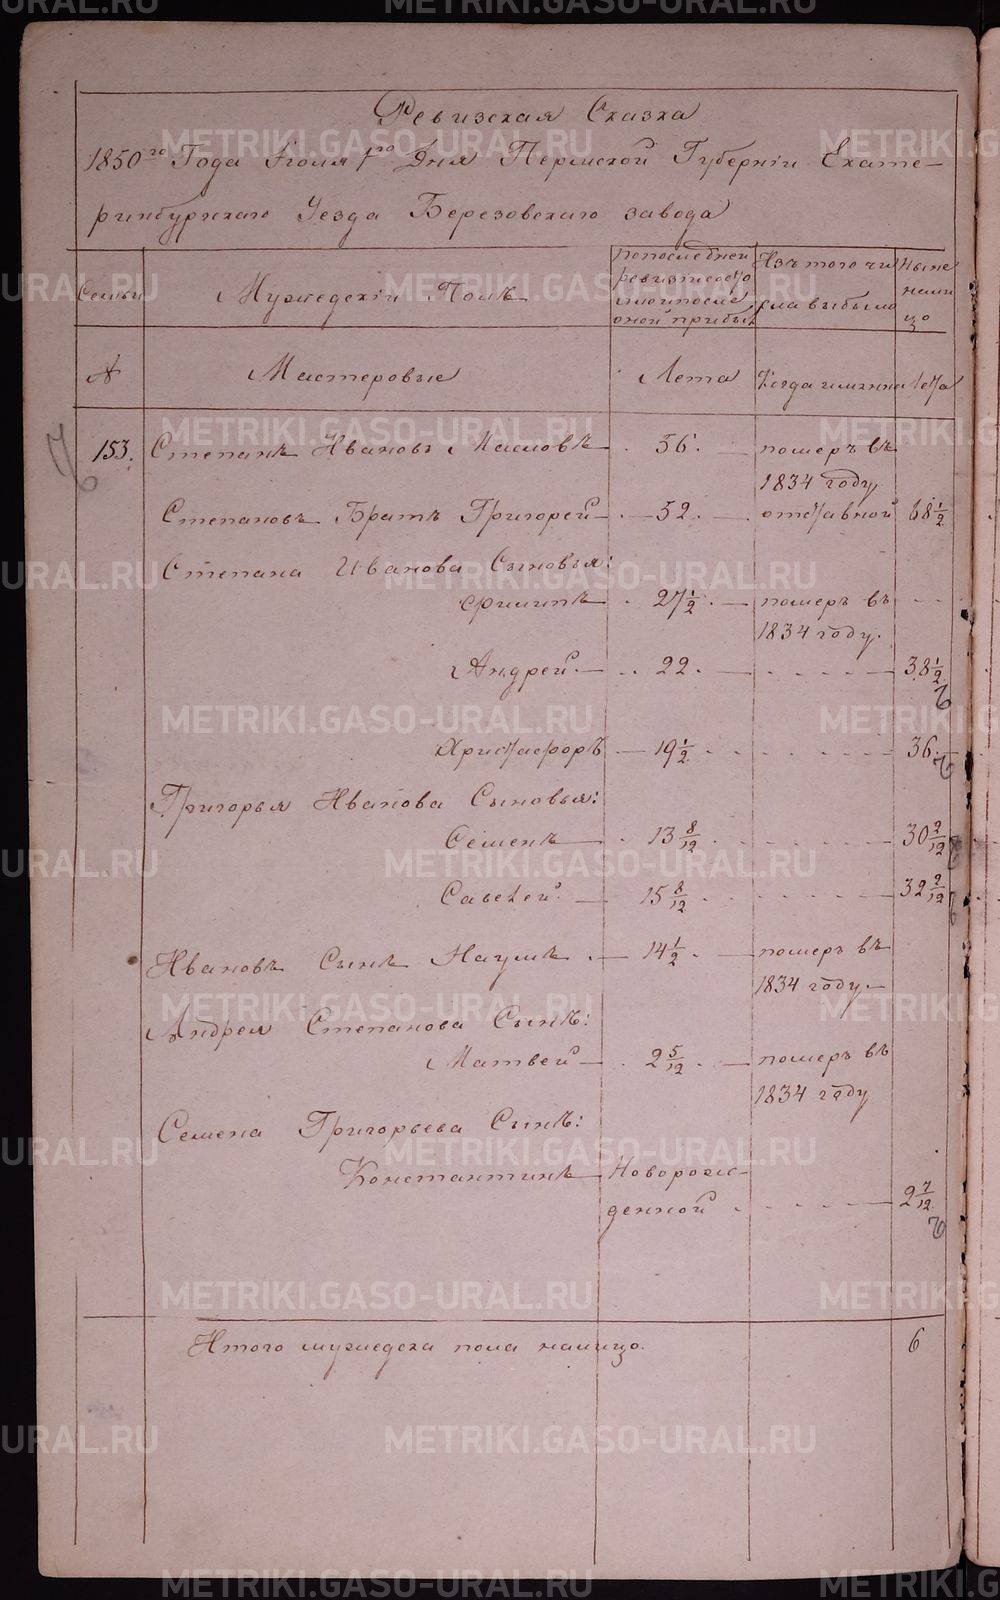 Ревизская Сказка
1850го Года Іюля 1го Дня Пермской Губерніи Екате-
ринбургскаго Уезда Березовскаго завода
Семьи
Мужедескій Полъ
попоследней
ревизіе
оной прибы.
Изъ того чи
сла выбыло
Ныне
нали
цо
№
Мастеровые
Лета
Когда имянна
Лета
153.
Степанъ Ивановъ Масловъ
56.
померъ въ
1834 году
Степановъ Братъ Григорей
52.
отставной
68 1/2
Степана Иванова Сыновья:
Филипъ
27 1/2
померъ въ
1834 году.
Андрей.
22.
38 1/2
Христофоръ
19 1/2
36.
Григорья Иванова Сыновья:
Семенъ
13 8/12
30 2/12
Савелей.
15 8/12
32 2/12
Ивановъ Сынъ Наумъ
14 1/2
померъ въ
1834 году.
Андрея Степанова Сынъ:
Матвей
2 5/12
померъ въ
1834 году
Семена Григорьева Сынъ:
Константинъ
Новорож-
денной
2 7/12
Итого мужедска пола налицо.
6
METRIKI.GASO-URAL.RU